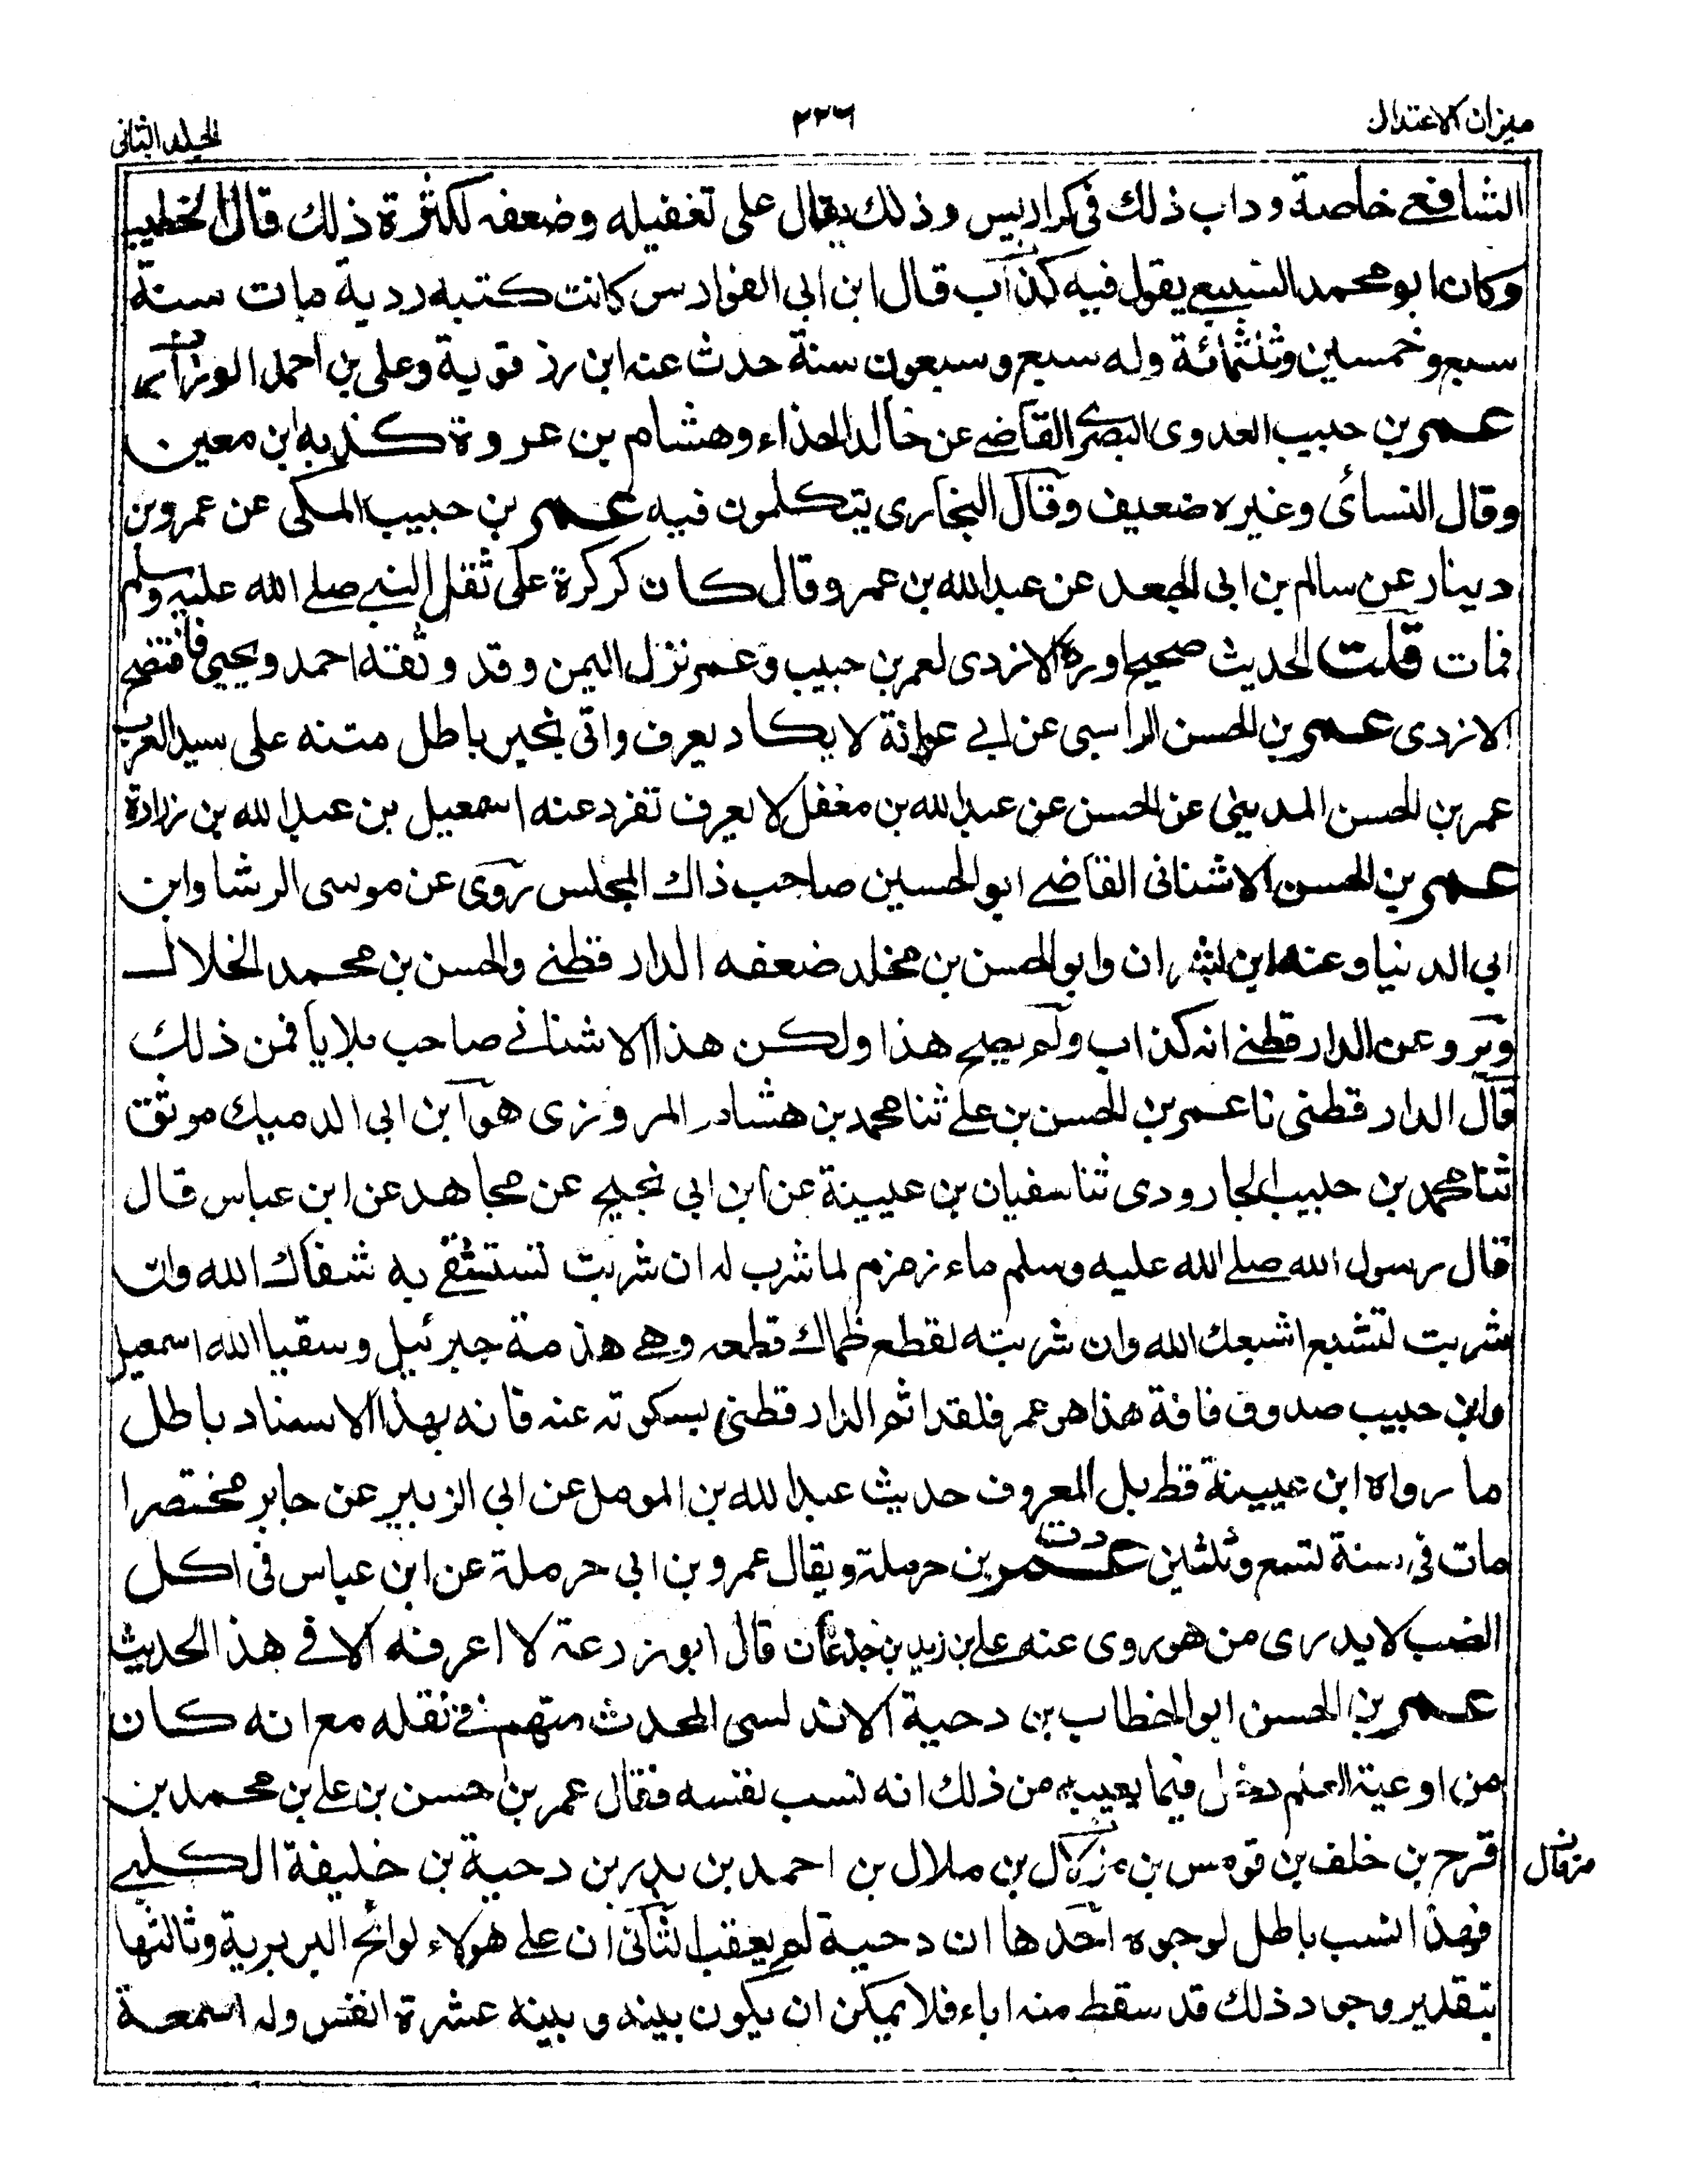 ميزان الاعتدال
٢٢٦
الجلد الثاني
الشافعي خاصة وداب ذلك في كراريس وذلك يقال على تغفيله وضعفه لكثرة ذلك قال الخطيب
وكان ابو محمد السبيع يقول فيه كذاب قال ابن ابي الفوارس كانت كتبه ردية مات سنة
سبع وخمسين وثلثمائة وله سبع وسبعون سنة حدث عنه ابن رزقوية وعلي بن احمد الوزان
عمر بن حبيب العدوى البصرى القاضي عن خالد الحذاء وهشام بن عروة كذبه ابن معين
وقال النسائى وغيره ضعيف وقال البخارى يتكلمون فيه عمر بن حبيب المكي عن عمرو بن
دينار عن سالم بن ابي الجعد عن عبد الله بن عمرو قال كان كركرة على ثقل النبي صلے الله عليه وسلم
فمات قلت الحديث صحيح اورده الازدى لعمر بن حبيب وعمر نزل اليمن وقد وثقه احمد ويحيى فافتضح
الازدى عمر بن الحسن الراسبى عن ابي عوانة لا يكاد يعرف واتى بخبر باطل متنه على سيد العرب
عمر بن الحسن المديني عن الحسن عن عبد الله بن مغفل لا يعرف تفرد عنه اسمعيل بن عبد الله بن زرارة
عمر بن الحسن الاشنانى القاضي ابو الحسين صاحب ذاك المجلس روى عن موسى الوشا وابن
ابي الدنيا وعنه ابن بشران وابو الحسن بن مخلد ضعفه الدارقطني والحسن بن محمد الخلال
ويرو عن الدارقطني انه كذاب ولم يصح هذا ولكن هذا الاشناني صاحب بلايا فمن ذلك
قال الدارقطنى نا عمر بن الحسن بن علي ثنا محمد بن هشام المروزى هو ابن ابي الدميك موثق
ثنا محمد بن حبيب الجارودى ثنا سفيان بن عيينة عن ابن ابي نجيح عن مجاهد عن ابن عباس قال
قال رسول الله صلے الله عليه وسلم ماء زمزم لما شرب له ان شربت تستشفي به شفاك الله وان
شربت لتشبع اشبعك الله وان شربته لقطع ظماك قطعه وهي هذمة جبرئيل وسقيا الله اسمعيل
وابن حبيب صدوق فافة هذا هو عمر فلقد اثم الدارقطنى بسكوته عنه فانه بهذا الاسناد باطل
ما رواه ابن عيينة قط بل المعروف حديث عبد الله بن المومل عن ابي الزبير عن جابر مختصرا
مات في سنة تسع وثلثين عمر بن حرملة ويقال عمرو بن ابي حرملة عن ابن عباس فى اكل
الضب لا يدرى من هو روى عنه علي بن زيد بن جدعان قال ابو زرعة لا اعرفه الا في هذا الحديث
عمر بن الحسن ابو الخطاب بن دحية الاندلسى المحدث متهم في نقله مع انه كان
من اوعية العلم دخل فيما يعيبه من ذلك انه نسب نفسه فقال عمر بن حسن بن علي بن محمد بن
فرح بن خلف بن قومس بن مزلال بن ملال بن احمد بن بدر بن دحية بن خليفة الكلبي
فهذا نسب باطل لوجوه احدها ان دحية لم يعقب الثاني ان على هولاء لوائح البربرية وثالثها
بتقدير وجود ذلك قد سقط منه اباء فلا يمكن ان يكون بينه وبينه عشرة انفس وله اسمعة